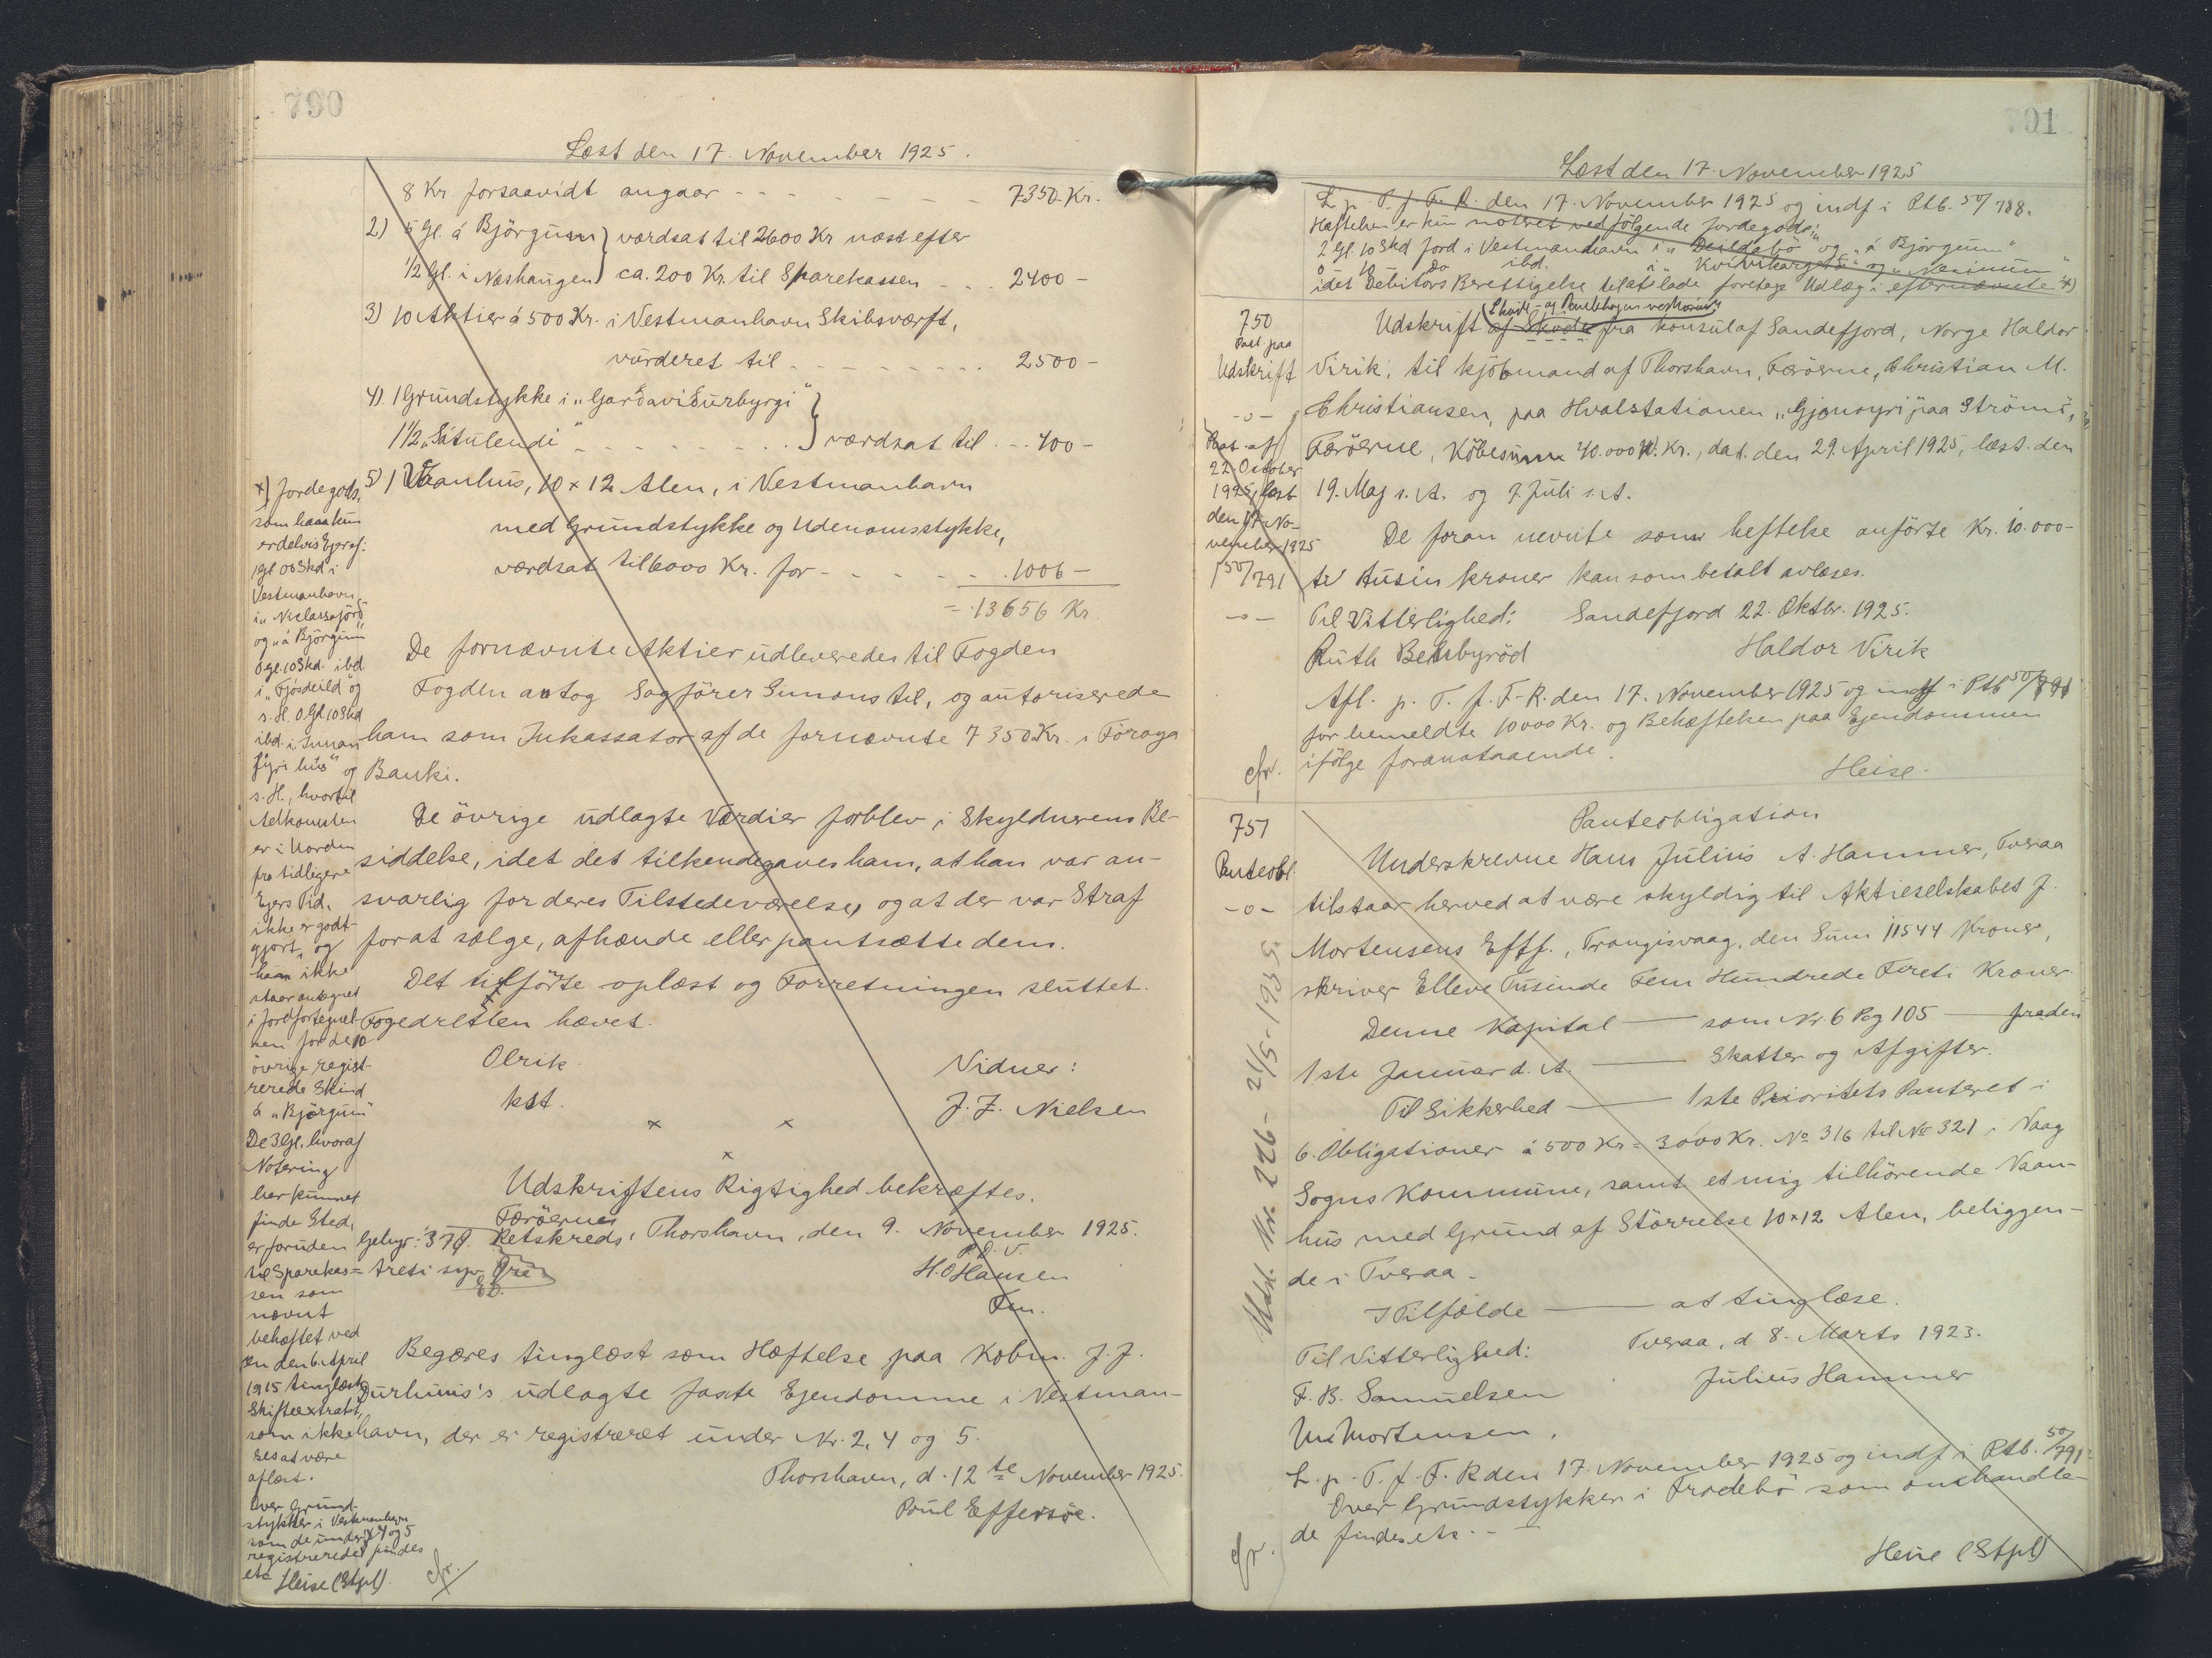 790
Læst den 17. November 1925.
8 Kr forsaavidt angaar - - - - - - - 7350. Kr.
2) 5 Gl. á Björgum } værdsat til 2600 Kr næst efter
1/2 Gl. i Neshaugen } ca. 200 Kr. til Sparekassen - - - 2400 -
3) 10 Aktier á 500 Kr. i Vestmanhavn Skibsværft,
vurderet til - - - - - - - - 2500 -
4) 1 Grundstykke i „Gardaviðurbyrgi"
1 1/2 „Sátulendi" - - - - - - } værdsat til - - 400 -
5) 1 Vaanhus, 10 x 12 Alen, i Vestmanhavn
med Grundstykke og Udenomsstykke,
værdsat til 6000 Kr. for - - - - - 1006 -
= 13656 Kr.
De fornævnte Aktier udleveredes til Fogden
Fogden antog Sagfører Simons til, og autoriserede
ham som Inkassator af de fornævnte 7350 Kr. i Föroya
Banki.
De övrige udlagte Værdier forblev i Skyldnerens Be-
siddelse, idet det tilkendegaves ham, at han var an-
svarlig for deres Tilstedeværelse, og at der var Straf
for at sælge, afhænde eller pantsætte dem.
Det tilförte oplæst og Forretningen sluttet.
Fogedretten hævet.
Olrik. Vidner:
kst. J. J. Nielsen
x x
x
Udskriftens Rigtighed bekræftes.
Færöernes
Gebyr: 37 Ø. Retskreds, Thorshavn, den 9. November 1925.
treti syv Øre P. D. V.
H. O Hansen
Fm.
Begæres tinglæst som Hæftelse paa Købm. J. J.
Durhuus's udlagte faste Ejendomme i Vestman-
havn, der er registreret under Nr. 2, 4 og 5.
Thorshavn, d. 12 te November 1925.
Poul Effersøe.
x) Jordegods,
som haan kun
er delvis Ejer af:
1 Gl 06 Skd i
Vestmanhavn
i „Niclassajörd"
og „á Björgum"
0 Gl. 10 Skd. ibd
i „Fjósdeild" og
s. H. 0 Gl. 10 Skd
ibd. i „Innan
fyri hús" og
s. H., hvortil
Adkomsten
er i Orden
fra tidligere
Ejers Tid,
ikke er godt-
gjort, og
haan ikke
staar antegnet
i Jordfortegnel-
sen for de 10
övrige regist-
rerede Skind
á „Björgum"
De 3 Gl. hvoraf
Notering
har kunnet
finde Sted,
er foruden
til Sparekas=
sen som
nævnt
behæftet ved
en den 6. April
1915 tinglæst
Skifteextrakt,
som ikke
ses at være
aflæst.
Over Grund-
stykker i Vestmanhavn
som de under 4 og 5
registrerede findes
etc Heise (Stpl).
cfr.
791
Læst den 17. November 1925
L. p. T. f. F. R. den 17. November 1925 og indf i Ptb. 50/788.
Hæftelsen er kun noteret ved følgende Jordegods:
2 Gl. 10 Skd Jord i Vestmanhavn i „Deildabö" og „á Björgum"
0 10 Do ibd. i „
idet Debitors Berettigelse til at lade foretage Udlæg i efternævnte x)
750
Paat. paa
Udskrift
-o-
Skøde- og Pantebogen vedkommende
Udskrift af Skøde fra konsul af Sandefjord, Norge Haldor
Virik, til kjöbmand af Thorshavn, Færöerne, Christian M.
Christiansen, paa Hvalstationen „Gjánoyri" paa Strömö,
Færöerne, Købesum 40.000 N. Kr., dat. den 29. April 1925, læst. den
19. Maj s. A. og 7. Juli s. A.
Paat. af
22. October
1925, læst
den 17. No-
vember 1925
50/791
-o-
De foran nevnte som heftelse anförte Kr. 10.000-
ti Tusin kroner kan som betalt avlæses.
Til Vitterlighed: Sandefjord 22. Oktbr. 1925.
Ruth Haldor Virik
Afl. p. T. f. F-R. den 17. November 1925 og indf i Ptb 50/791
for bemeldte 10000 Kr. og Behæftelsen paa Ejendommen
ifölge foranstaaende.
cfr. Heise.
751
Panteobl.
-o-
Udsl. Nr. 226 - 21/5 - 1955
Panteobligation
Underskrevne Hans Julius A. Hammer, Tveraa
tilstaar herved at være skyldig til Aktieselskabet J.
Mortensens Eftf., Trangisvaag, den Sum 11544 Kroner,
skriver Elleve Tusinde Fem Hundrede Fireti Kroner
Denne Kapital —— som Nr. 6 Pag 105 —— fra den
1ste Januar d. A. —— Skatter og Afgifter.
Til Sikkerhed —— 1ste Prioritets Panteret i
6. Obligationer á 500 Kr = 3000 Kr. No 316 til No 321 i Vaag
Sogns Kommune, samt et mig tilhörende Vaan-
hus med Grund af Störrelse 10 x 12 Alen, beliggen-
de i Tveraa.
I Tilfælde —— at tinglæse.
Til Vitterlighed: Tveraa, d 8. Marts 1923.
F. B. Samuelsen Julius Hammer
Mortensen.
L. p. T. f. F. R den 17. November 1925 og indf i Ptb. 50/791.
Over Grundstykker i Frodebö som omhandle-
de findes etc. -
cfr. Heise (Stpl)